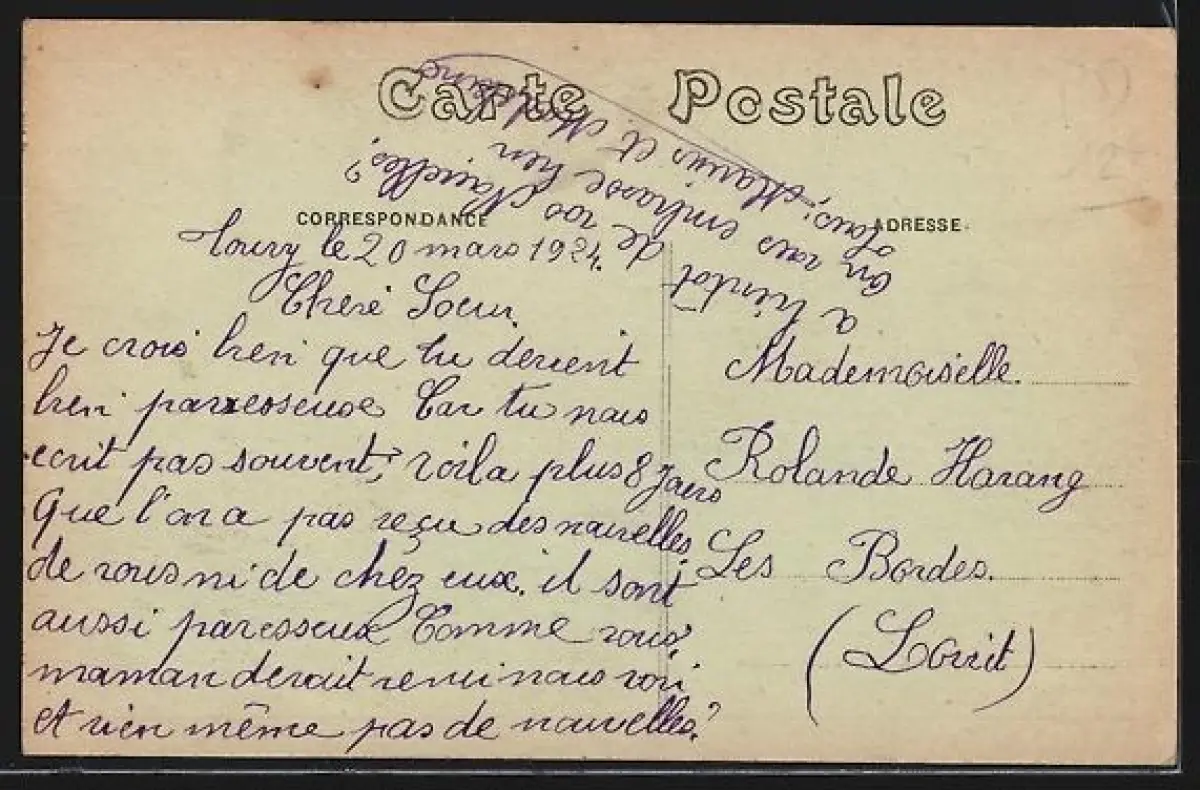 Carte Postale
CORRESPONDANCE
ADRESSE
Loury le 20 mars 1924.
Cheré Soeur.
Je crois bien que tu devient
bien parresseuse Car tu nous
ecrit pas souvent, voila plus 8 Jours
Que l'on a pas reçu des nouvelles
de vous ni de chez eux. il sont
aussi paresseux Comme vous,
maman devait venir nous voir
et rien même pas de nouvelles?
a bientôt de vos Nouvelles?
On vous embrasse bien
tous, Marius et Madeleine
Mademoiselle.
Rolande Harang
Les Bordes.
(Loirit)